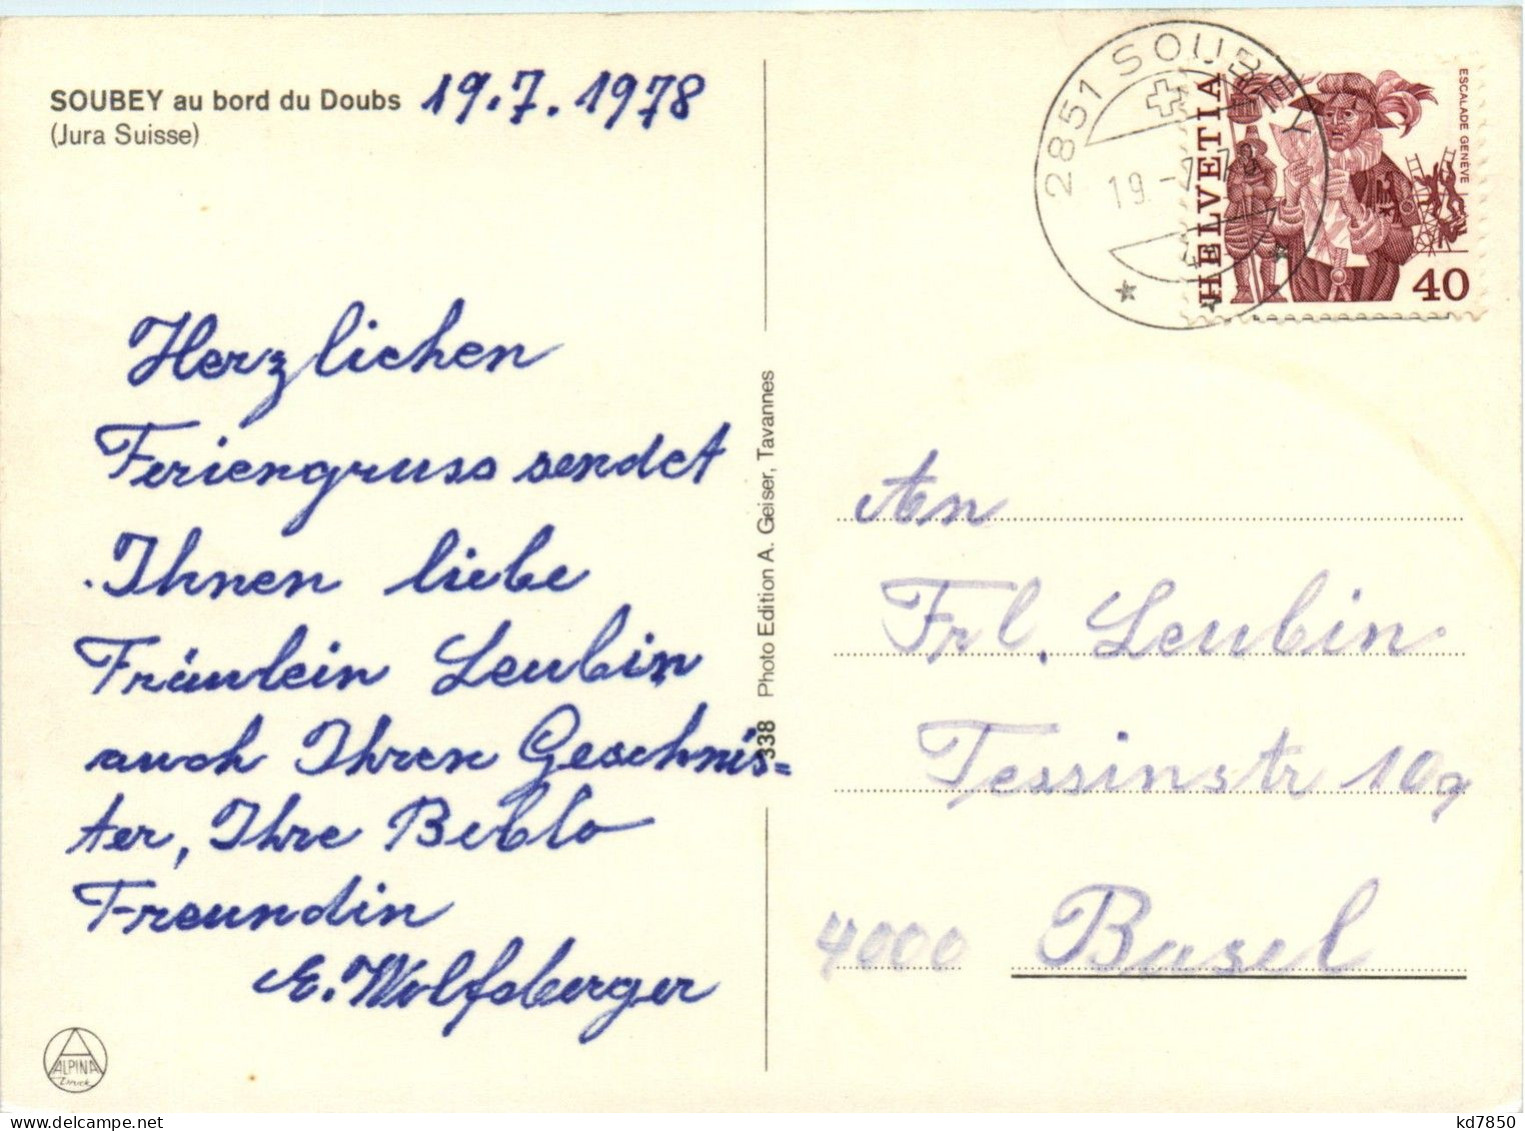 SOUBEY au bord du Doubs 19.7.1978
(Jura Suisse)
Herzlichen
Feriengruss sendet
Ihnen liebe
Fräulein Leubin
auch Ihren Geschwis=
ter, Ihre Beblo
Freundin
E. Wolfsberger
ALPINA
338 Photo Edition A. Geiser, Tavannes
2851 SOUBEY
19.-7.78
HELVETIA
ESCALADE GENÈVE
40
An
Frl. Leubin
Tessinstr 10
4000 Basel
kd7850